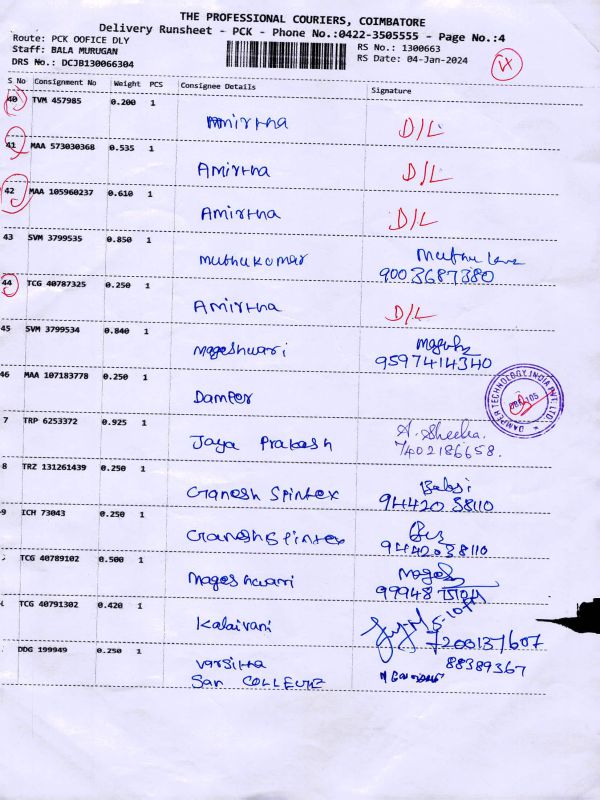 THE PROFESSIONAL COURIERS, COIMBATORE
Delivery Runsheet - PCK - Phone No.:0422-3505555 - Page No.:4
Route: PCK OOFICE DLY
Staff: BALA MURUGAN
DRS No.: DCJB130066304
RS No.: 1300663
RS Date: 04-Jan-2024
S No Consignment No Weight PCS Consignee Details Signature
40 TVM 457985 0.200 1
Amirtha D/L
41 MAA 573030368 0.535 1
Amirtha D/L
42 MAA 105960237 0.610 1
Amirtha D/L
43 SVM 3799535 0.850 1
muthukumar
9003687380
44 TCG 40787325 0.250 1
Amirtha D/L
45 SVM 3799534 0.840 1
mageshwari
9597414340
46 MAA 107183778 0.250 1
Damper
DAMPER TECHNOLOGY INDIA PVT. LTD.
7 TRP 6253372 0.925 1
Jaya Prakash A. Sheeba.
7402186658.
8 TRZ 131261439 0.250 1
Ganesh Spintex
94420 38110
9 ICH 73043 0.250 1
Ganesh Spintex
9442038110
TCG 40789102 0.500 1
mageshwari
99948
TCG 40791302 0.420 1
Kalaivani
DDG 199949 0.250 1
Varsitha 88389367
San